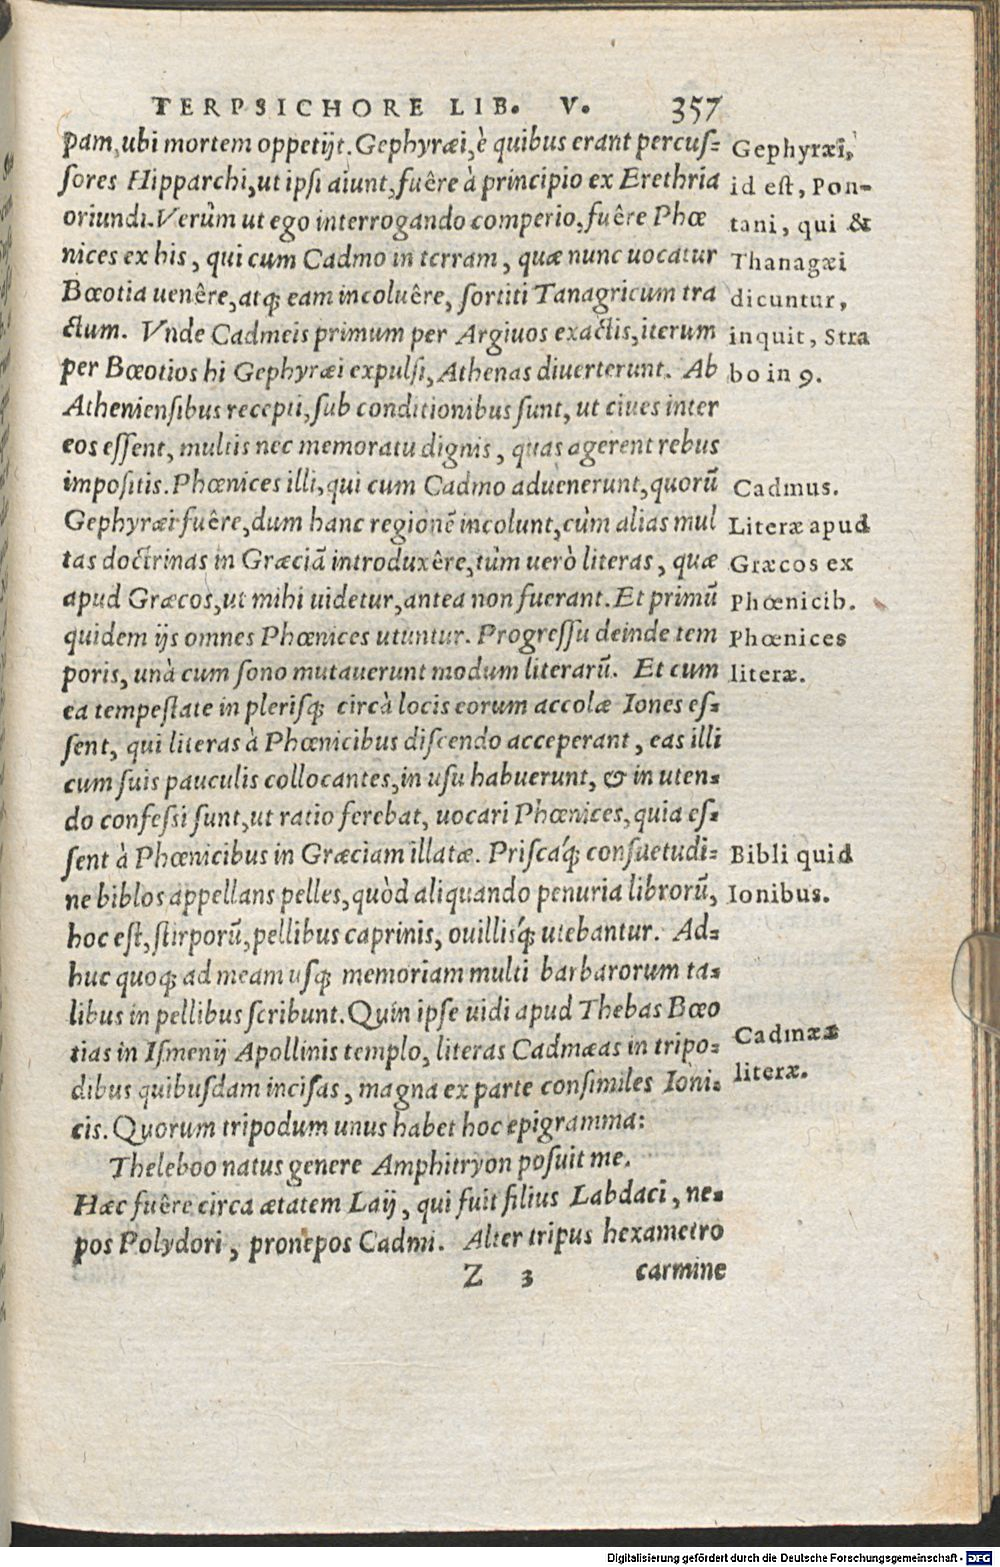 TERPSICHORE LIB. V. 357
pam, ubi mortem oppetijt. Gephyræi, è quibus erant percuſ-
ſores Hipparchi, ut ipſi aiunt, fuêre à principio ex Erethria
oriundi. Verùm ut ego interrogando comperio, fuêre Phœ
nices ex his, qui cum Cadmo in terram, quæ nunc uocatur
Bœotia uenêre, atq; eam incoluêre, ſortiti Tanagricum tra
ctum. Vnde Cadmeis primum per Argiuos exactis, iterum
per Bœotios hi Gephyræi expulſi, Athenas diuerterunt. Ab
Athenienſibus recepti, ſub conditionibus ſunt, ut ciues inter
eos eſſent, multis nec memoratu dignis, quas agerent rebus
impoſitis. Phœnices illi, qui cum Cadmo aduenerunt, quorũ
Gephyræi fuêre, dum hanc regionẽ incolunt, cùm alias mul
tas doctrinas in Græciã introduxêre, tùm uerò literas, quæ
apud Græcos, ut mihi uidetur, antea non fuerant. Et primũ
quidem ijs omnes Phœnices utuntur. Progreſſu deinde tem
poris, unà cum ſono mutauerunt modum literarũ. Et cum
ea tempeſtate in pleriſq; circà locis eorum accolæ Iones eſ-
ſent, qui literas à Phœnicibus diſcendo acceperant, eas illi
cum ſuis pauculis collocantes, in uſu habuerunt, & in uten-
do confeſſi ſunt, ut ratio ferebat, uocari Phœnices, quia eſ-
ſent à Phœnicibus in Græciam illatæ. Priſcáq; conſuetudi-
ne biblos appellans pelles, quòd aliquando penuria librorũ,
hoc eſt, ſtirporũ, pellibus caprinis, ouilliſq́; utebantur. Ad-
huc quoq; ad meam uſq; memoriam multi barbarorum ta-
libus in pellibus ſcribunt. Quin ipſe uidi apud Thebas Bœo
tias in Iſmenij Apollinis templo, literas Cadmæas in tripo-
dibus quibuſdam inciſas, magna ex parte conſimiles Ioni-
cis. Quorum tripodum unus habet hoc epigramma:
Theleboo natus genere Amphitryon poſuit me.
Hæc fuêre circa ætatem Laij, qui fuit filius Labdaci, ne-
pos Polydori, pronepos Cadmi. Alter tripus hexametro
Z 3 carmine
Gephyræi,
id eſt, Pon-
tani, qui &
Thanagæi
dicuntur,
inquit, Stra
bo in 9.
Cadmus.
Literæ apud
Græcos ex
Phœnicib.
Phœnices
literæ.
Bibli quid
Ionibus.
Cadmææ
literæ.
Digitalisierung gefördert durch die Deutsche Forschungsgemeinschaft - DFG